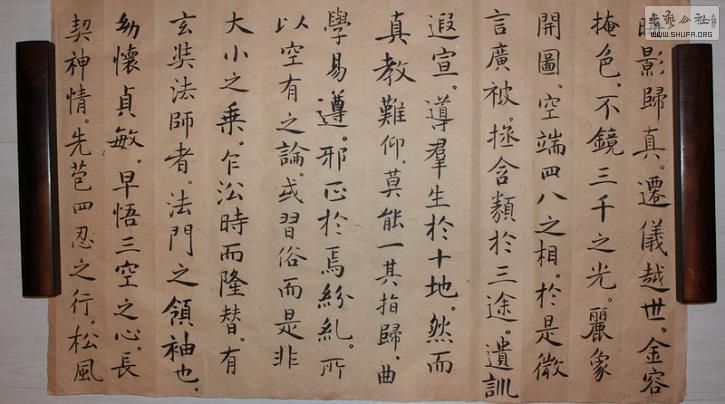 晦影歸真。遷儀越世。金容
掩色。不鏡三千之光。麗象
開圖。空端四八之相。於是微
言廣被。拯含類於三途。遺訓
遐宣。導羣生於十地。然而
真教難仰。莫能一其指歸。曲
學易遵。邪正於焉紛糺。所
以空有之論。或習俗而是非
大小之乘。乍沿時而隆替。有
玄奘法師者。法門之領袖也。
幼懷貞敏。早悟三空之心。長
契神情。先苞四忍之行。松風
公社
WWW.SHUFA.ORG